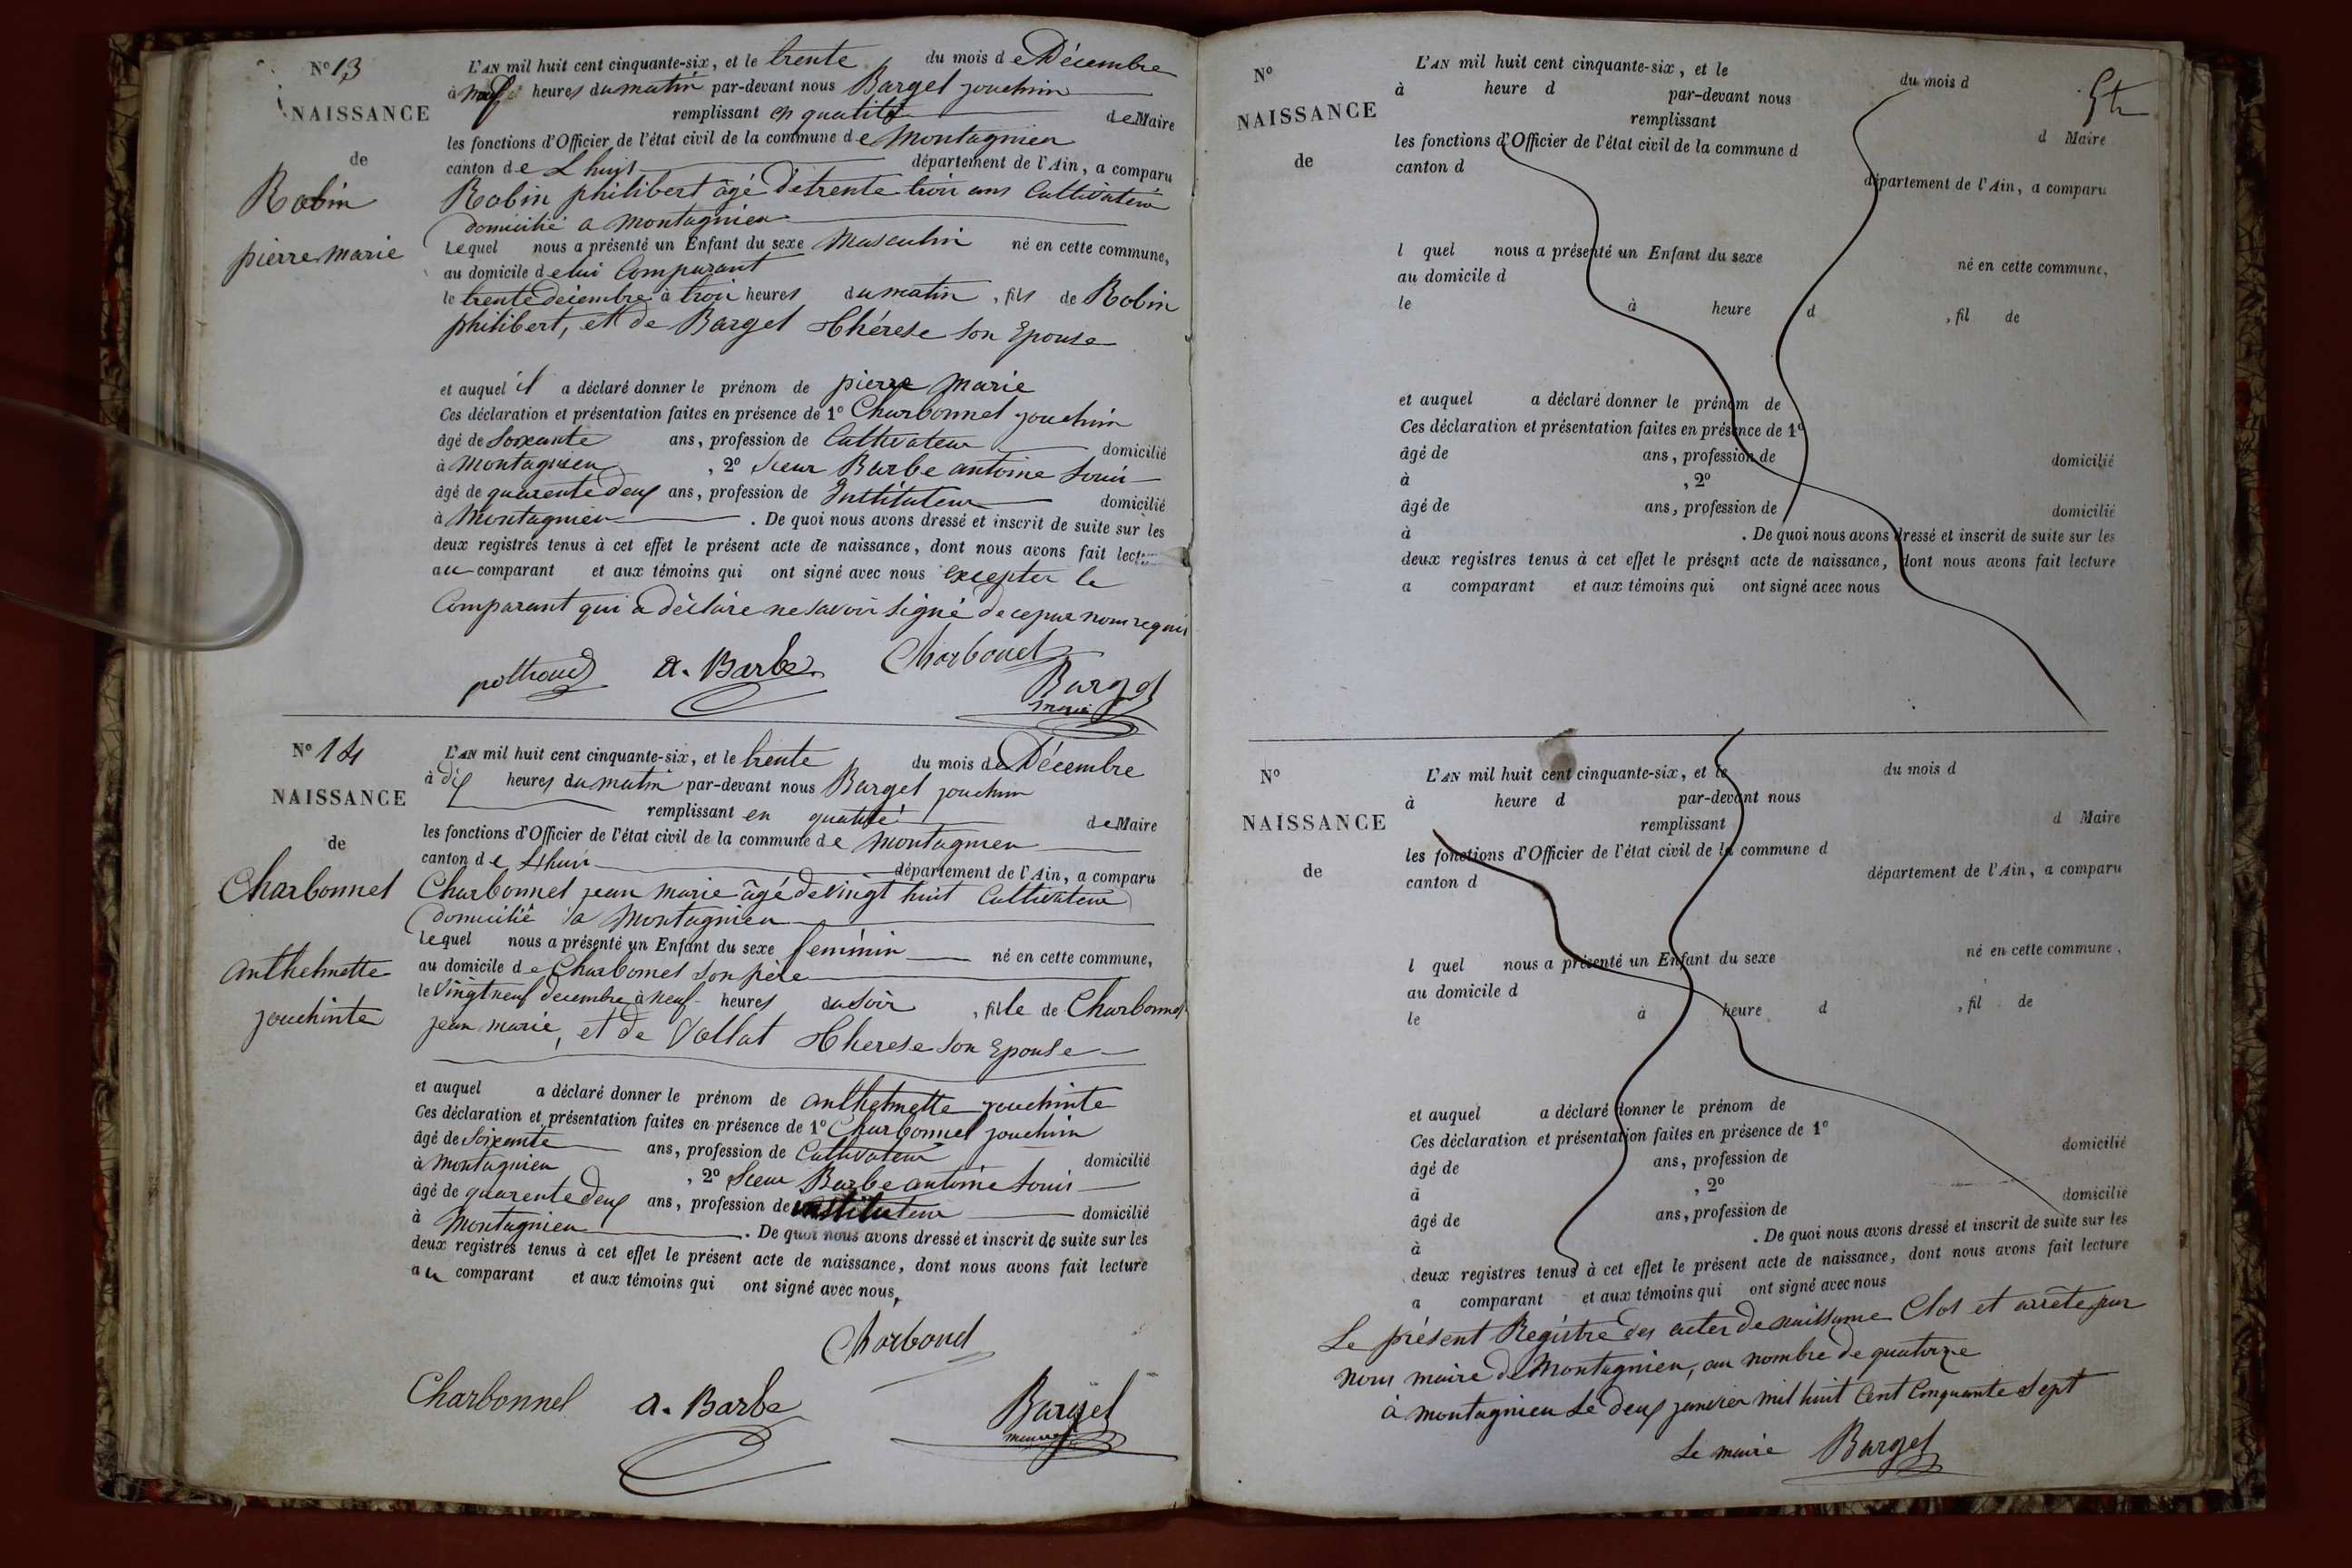 N° 13
NAISSANCE
de
Robin
pierre marie
L'AN mil huit cent cinquante-six, et le trente du mois de Décembre
à neuf heures du matin par-devant nous Barget jouchim
remplissant en qualité de Maire
les fonctions d'Officier de l'état civil de la commune de Montagnieu
canton de Lhuis département de l'Ain, a comparu
Robin philibert âgé de trente trois ans Cultivateur
domicilié a montagnieu
Lequel nous a présenté un Enfant du sexe Masculin né en cette commune,
au domicile de lui Comparant
le trente décembre à trois heures du matin, fils de Robin
philibert, et de Barget Thérese son Epouse
et auquel il a déclaré donner le prénom de pierre marie
Ces déclaration et présentation faites en présence de 1° Charbonnet jouchim
âgé de Soixante ans, profession de Cultivateur domicilié
à Montagnieu, 2° Sieur Barbe antoine Louis
âgé de quarente deux ans, profession de Instituteur domicilié
à Montagnieu. De quoi nous avons dressé et inscrit de suite sur les
deux registres tenus à cet effet le présent acte de naissance, dont nous avons fait lecture
au comparant et aux témoins qui ont signé avec nous excepter le
Comparant qui a déclaré ne savoir signé de ce par nous requis
a. Barbe Charbonet
Barget
maire
N° 14
NAISSANCE
de
Charbonnet
anthelmette
jouchinte
L'AN mil huit cent cinquante-six, et le trente du mois de Décembre
à dix heures du matin par-devant nous Barget jouchim
remplissant en qualité de Maire
les fonctions d'Officier de l'état civil de la commune de Montagnieu
canton de Lhuis département de l'Ain, a comparu
Charbonnet jean marie âgé de vingt huit Cultivateur
domicilié à Montagnieu
Lequel nous a présenté un Enfant du sexe feminin né en cette commune,
au domicile de Charbonnet son père
le vingt neuf decembre à neuf heures du soir, fille de Charbonnet
jean marie, et de Vallat Therese son Epouse
et auquel a déclaré donner le prénom de anthelmette jouchinte
Ces déclaration et présentation faites en présence de 1° Charbonnet jouchim
âgé de Soixante ans, profession de Cultivateur domicilié
à Montagnieu, 2° Sieur Barbe antoine Louis
âgé de quarente deux ans, profession de instituteur domicilié
à Montagnieu. De quoi nous avons dressé et inscrit de suite sur les
deux registres tenus à cet effet le présent acte de naissance, dont nous avons fait lecture
au comparant et aux témoins qui ont signé avec nous,
Charbonet
Charbonnel a. Barbe Barget
N°
NAISSANCE
de
L'AN mil huit cent cinquante-six, et le du mois d
à heure d par-devant nous
remplissant d Maire
les fonctions d'Officier de l'état civil de la commune d
canton d département de l'Ain, a comparu
l quel nous a présenté un Enfant du sexe né en cette commune,
au domicile d
le à heure d , fil de
et auquel a déclaré donner le prénom de
Ces déclaration et présentation faites en présence de 1°
âgé de ans, profession de domicilié
à , 2°
âgé de ans, profession de domicilié
à . De quoi nous avons dressé et inscrit de suite sur les
deux registres tenus à cet effet le présent acte de naissance, dont nous avons fait lecture
a comparant et aux témoins qui ont signé avec nous
N°
NAISSANCE
de
L'AN mil huit cent cinquante-six, et le du mois d
à heure d par-devant nous
remplissant d Maire
les fonctions d'Officier de l'état civil de la commune d
canton d département de l'Ain, a comparu
l quel nous a présenté un Enfant du sexe né en cette commune,
au domicile d
le à heure d , fil de
et auquel a déclaré donner le prénom de
Ces déclaration et présentation faites en présence de 1°
âgé de ans, profession de domicilié
à , 2°
âgé de ans, profession de domicilié
à . De quoi nous avons dressé et inscrit de suite sur les
deux registres tenus à cet effet le présent acte de naissance, dont nous avons fait lecture
a comparant et aux témoins qui ont signé avec nous
Le présent Registre des actes de naissance Clos et arrêté par
nous maire de Montagnieu, au nombre de quatorze
à montagnieu Le deux janvier mil huit Cent Cinquante Sept
Le maire Barget